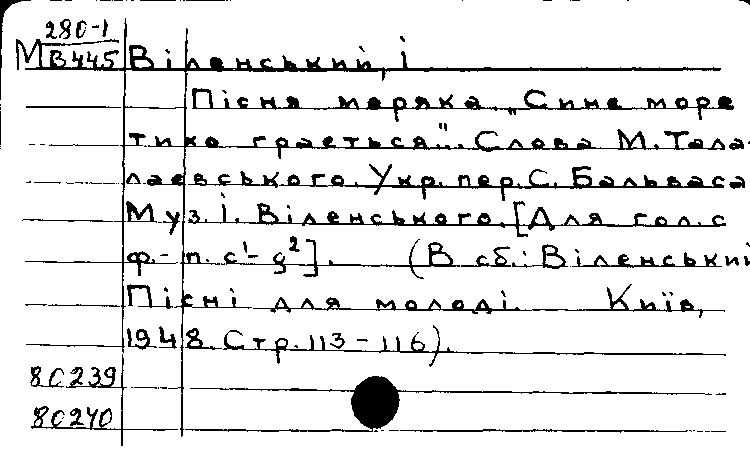 280-1
М В445 Віленський, і
Пісня моряка. „Синє море
тихо грається". Слова М. Тала-
лаєвського. Укр. пер. С. Бальваса
Муз. І. Віленського. [Для гол. с
ф.-п. c¹- g²]. (В сб.: Віленський
Пісні для молоді. Київ,
1948. Стр. 113-116).
80239
80240